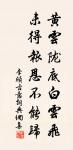 黄雲隴底白雲飛
未得報恩不能歸
李頎古意詞典網